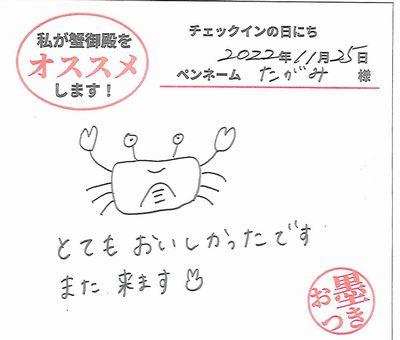 私が蟹御殿を
オススメ
します！
チェックインの日にち
2022年11月25日
ペンネーム たがみ 様
とても おいしかったです
また 来ます
お墨つき